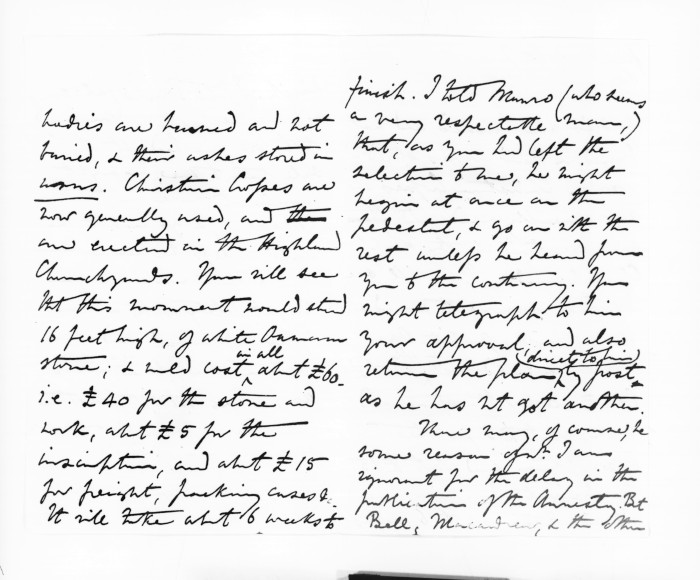 bodies are burned and not
buried, & their ashes stored in
urns. Christian Crosses are
now generally used, and the
are erected in the Highland
Churchyards. You will see
tht this monument would stand
16 feet high, of white
stone; & wild cost in all abt £60_
i.e. £40 for the stone and
work, abt £5 for the
inscription, and abt £15
for freight, packing cases &.
It will take abt 6 weeks to
finish. I told Munro (who seems
a very respectable man,)
that, as you had left the
selection to me, he might
begin at once on the
pedestal, & go on with the
rest unless he heard from
you to the contrary. You
might telegraph to him
your approval, and also
return the plan (direct to him) by post_
as he has not got another.
There may, of course, be
some reason of wh. I am
ignorant for the delay in the
publication of the Amnesty. But
Bell, Macandrew, & the other